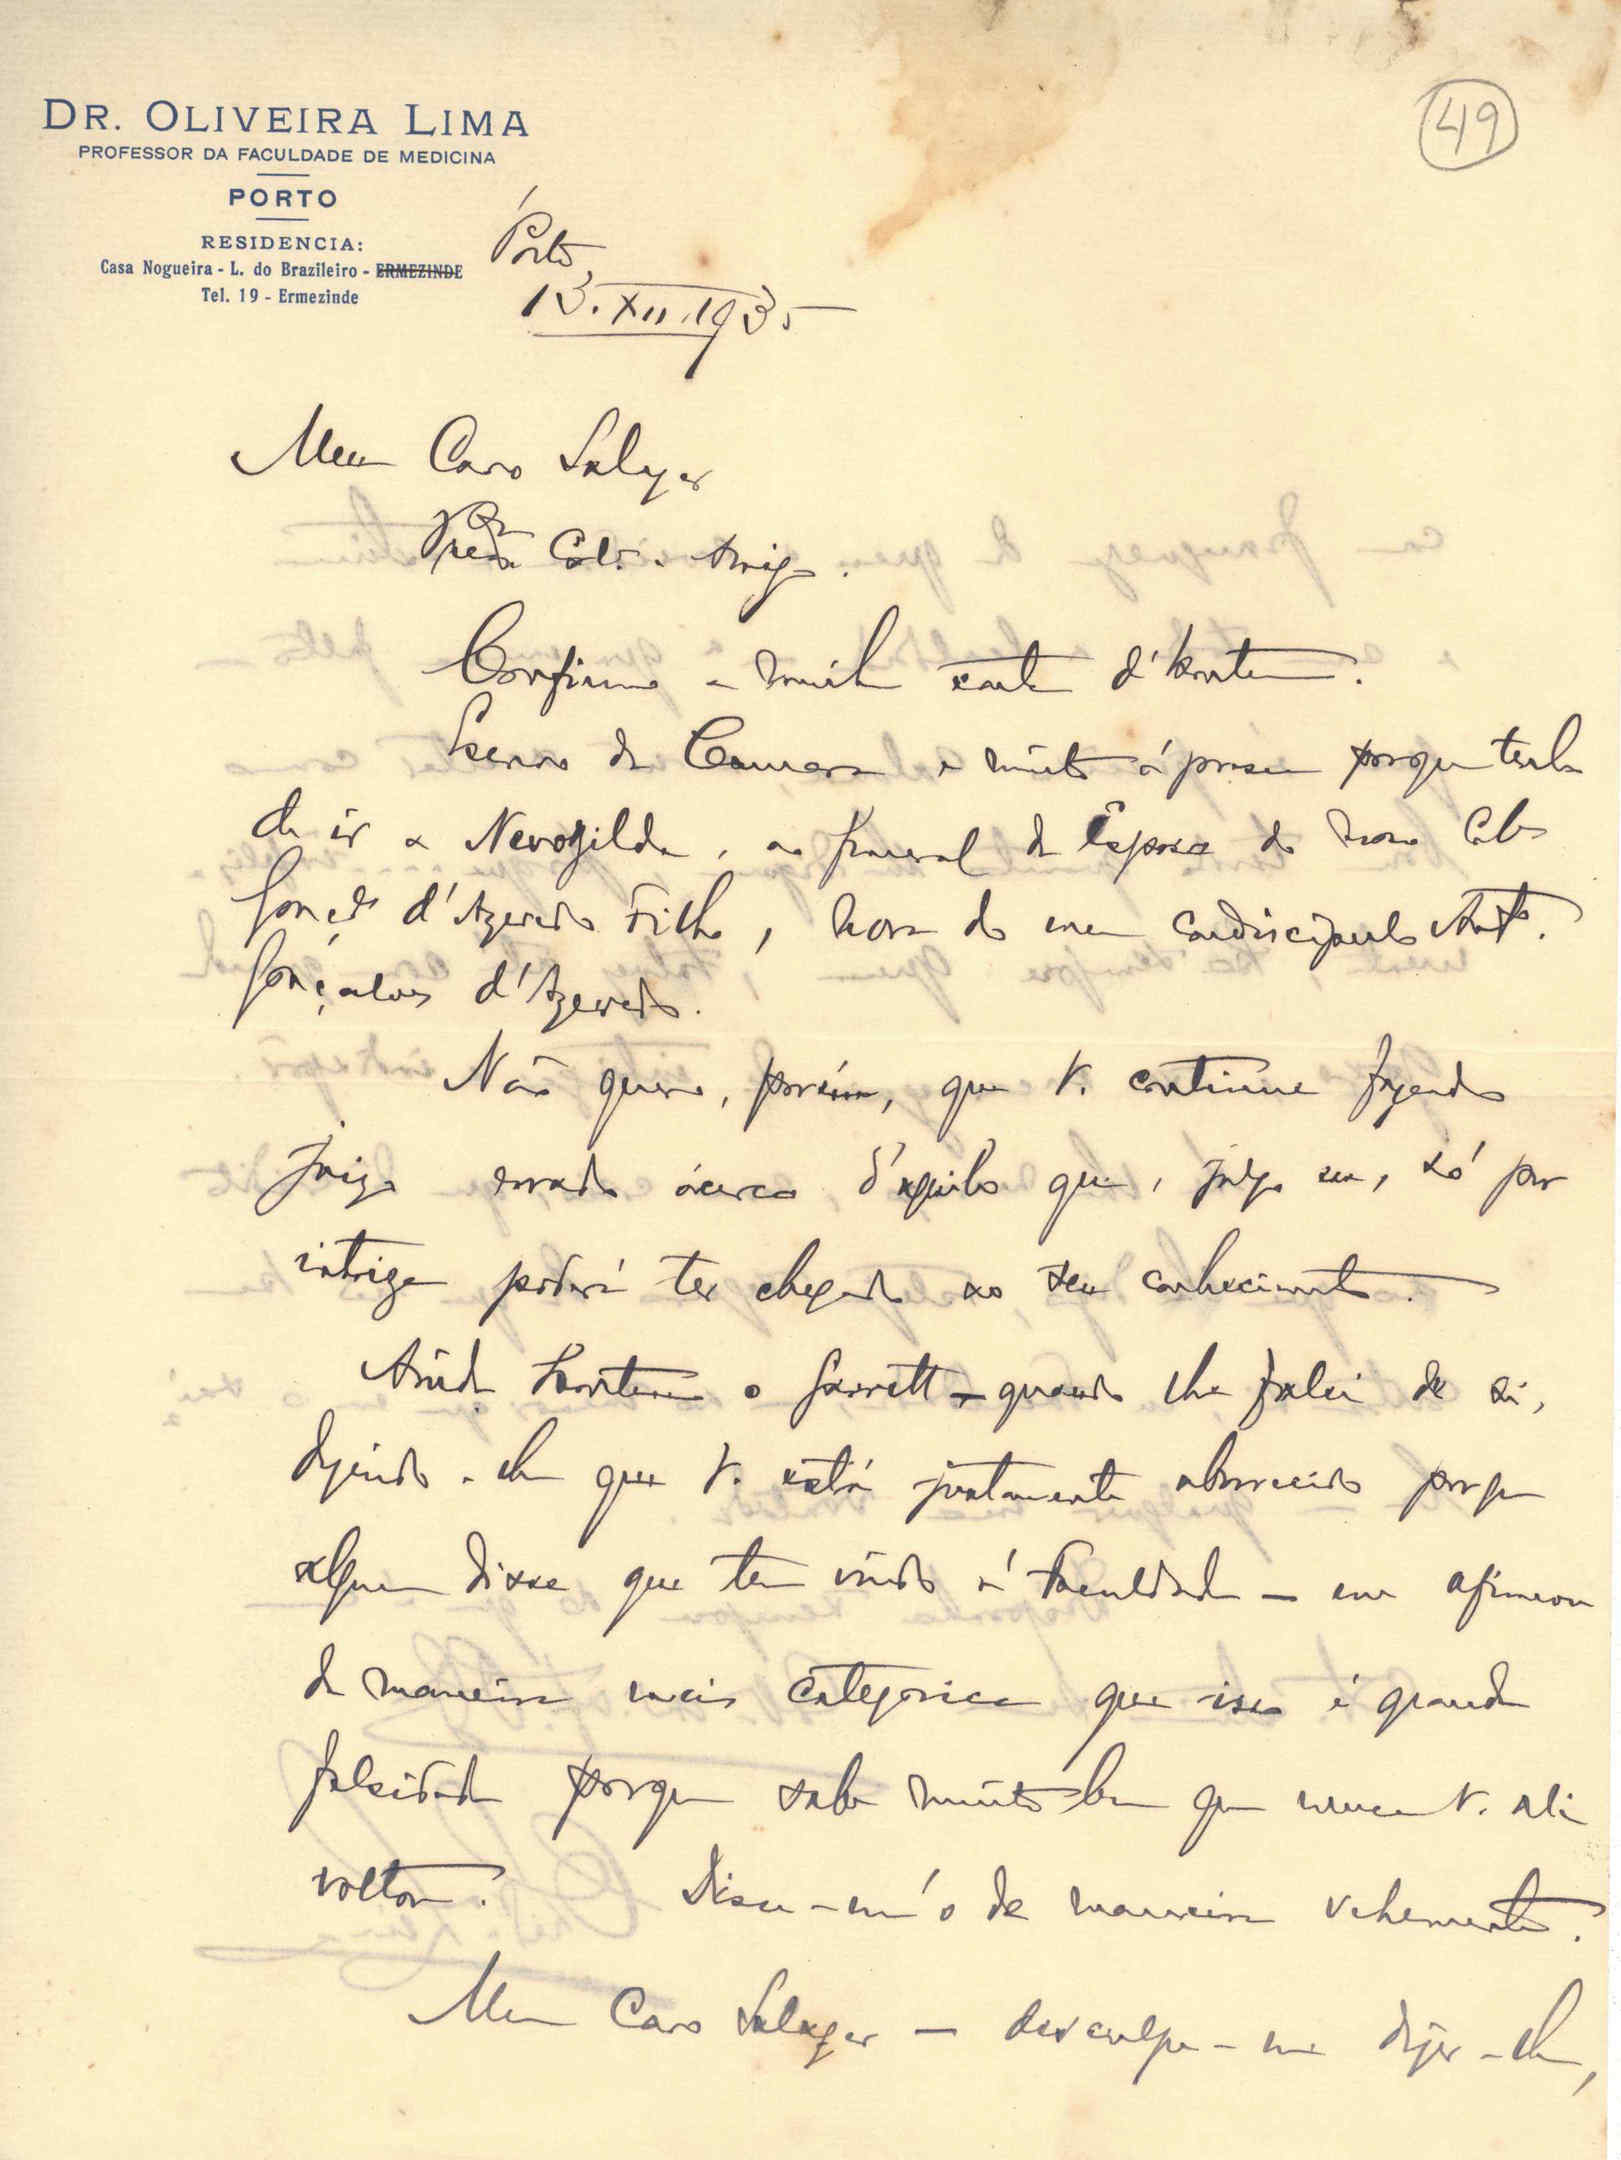 DR. OLIVEIRA LIMA
PROFESSOR DA FACULDADE DE MEDICINA
PORTO
RESIDENCIA:
Casa Nogueira - L. do Brazileiro - ERMEZINDE
Tel. 19 - Ermezinde
49
Porto,
13.XII.1935
Meu Caro Salazar
Col. e Amigo.
Confirmo a minha carta d'hontem.
Escrevo da Camara e muito á pressa porque tenho
de ir a Nevogilde, ao funeral da Esposa do nosso Col.
Gonç. d'Azevedo Filho, nora do meu condiscipulo Ant.
Gonçalves d'Azevedo.
Não quero, porém, que V. continue fazendo
juizo errado ácerca d'aquilo que, julgo eu, só por
intriga poderá ter chegado ao seu conhecimento.
Ainda hontem o Garrett - quando lhe falei de si,
dizendo-lhe que V. está justamente aborrecido porque
alguem disse que tem vindo á Faculdade - me afirmou
da maneira mais categorica que isso é grande
falsidade porque sabe muito bem que nunca V. ali
voltou. Disse-m'o de maneira vehemente.
Meu Caro Salazar - desculpe-me dizer-lhe,